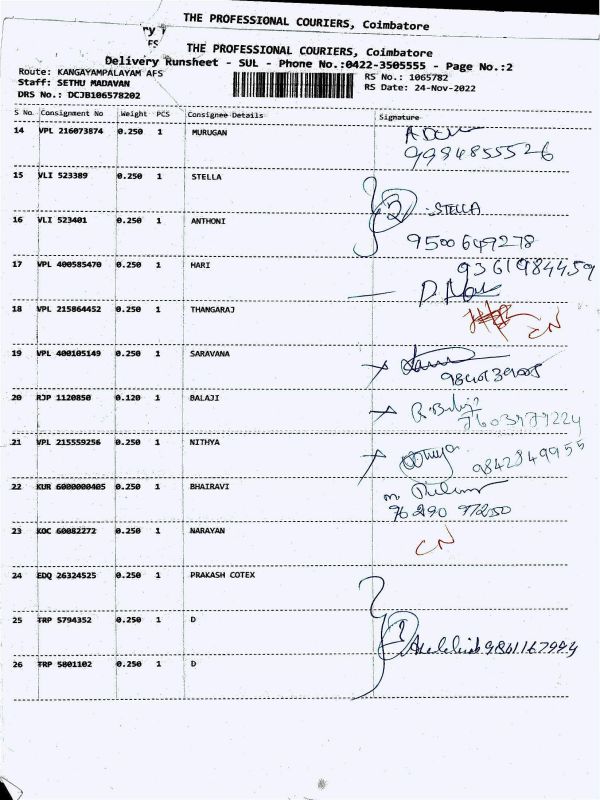 THE PROFESSIONAL COURIERS, Coimbatore
ry
FS
THE PROFESSIONAL COURIERS, Coimbatore
Delivery Runsheet - SUL - Phone No.:0422-3505555 - Page No.:2
Route: KANGAYAMPALAYAM AFS
RS No.: 1065782
Staff: SETHU MADAVAN
RS Date: 24-Nov-2022
DRS No.: DCJB106578202
S No. Consignment No Weight PCS Consignee Details Signature
14 VPL 216073874 0.250 1 MURUGAN
9994855526
15 VLI 523389 0.250 1 STELLA
2 -STELLA
16 VLI 523401 0.250 1 ANTHONI
9500649278
17 VPL 400585470 0.250 1 HARI 9361984459
18 VPL 215864452 0.250 1 THANGARAJ
CN
19 VPL 400105149 0.250 1 SARAVANA
20 RJP 1120850 0.120 1 BALAJI R. Balaji
21 VPL 215559256 0.250 1 NITHYA
9842849955
22 KUR 6000000405 0.250 1 BHAIRAVI
96290 97250
23 KOC 60082272 0.250 1 NARAYAN CN
24 EDQ 26324525 0.250 1 PRAKASH COTEX
25 TRP 5794352 0.250 1 D
3
26 TRP 5801102 0.250 1 D